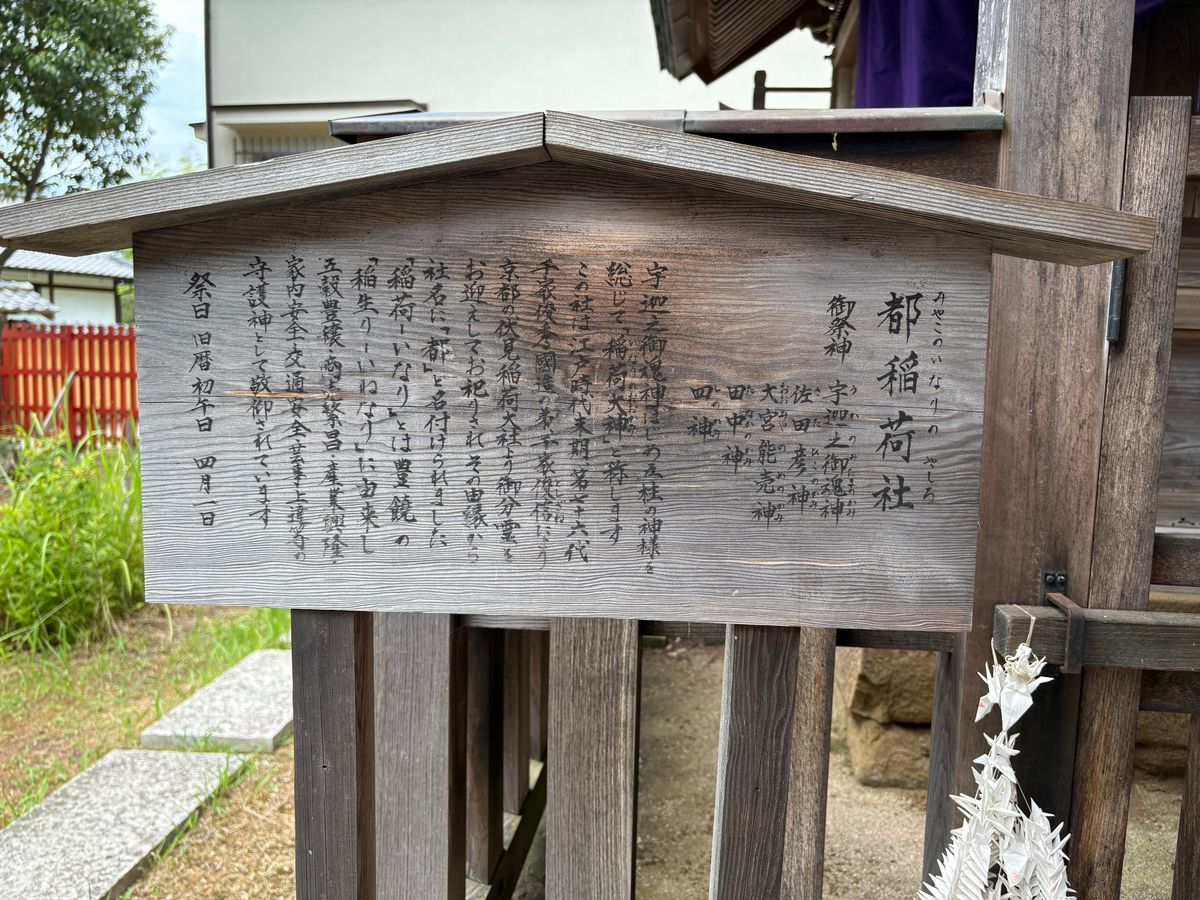 みやこのいなりの やしろ
都稲荷社
御祭神 宇迦之御魂神
佐田彦神
大宮能売神
田中神
四神
宇迦之御魂神はじめ五柱の神様を
総じて「稲荷大神」と称します
この社は江戸時代末期、第七十六代
千家俊秀國造の弟千家俊信により
京都の伏見稲荷大社より御分霊を
お迎えしてお祀りされ、その由縁から
社名に「都」と名付けられました
「稲荷ーいなり」とは豊饒の
「稲生りーいねなり」に由来し
五穀豊穣・商売繁昌・産業興隆・
家内安全・交通安全・芸事上達等の
守護神として敬仰されています
祭日 旧暦初午日 四月